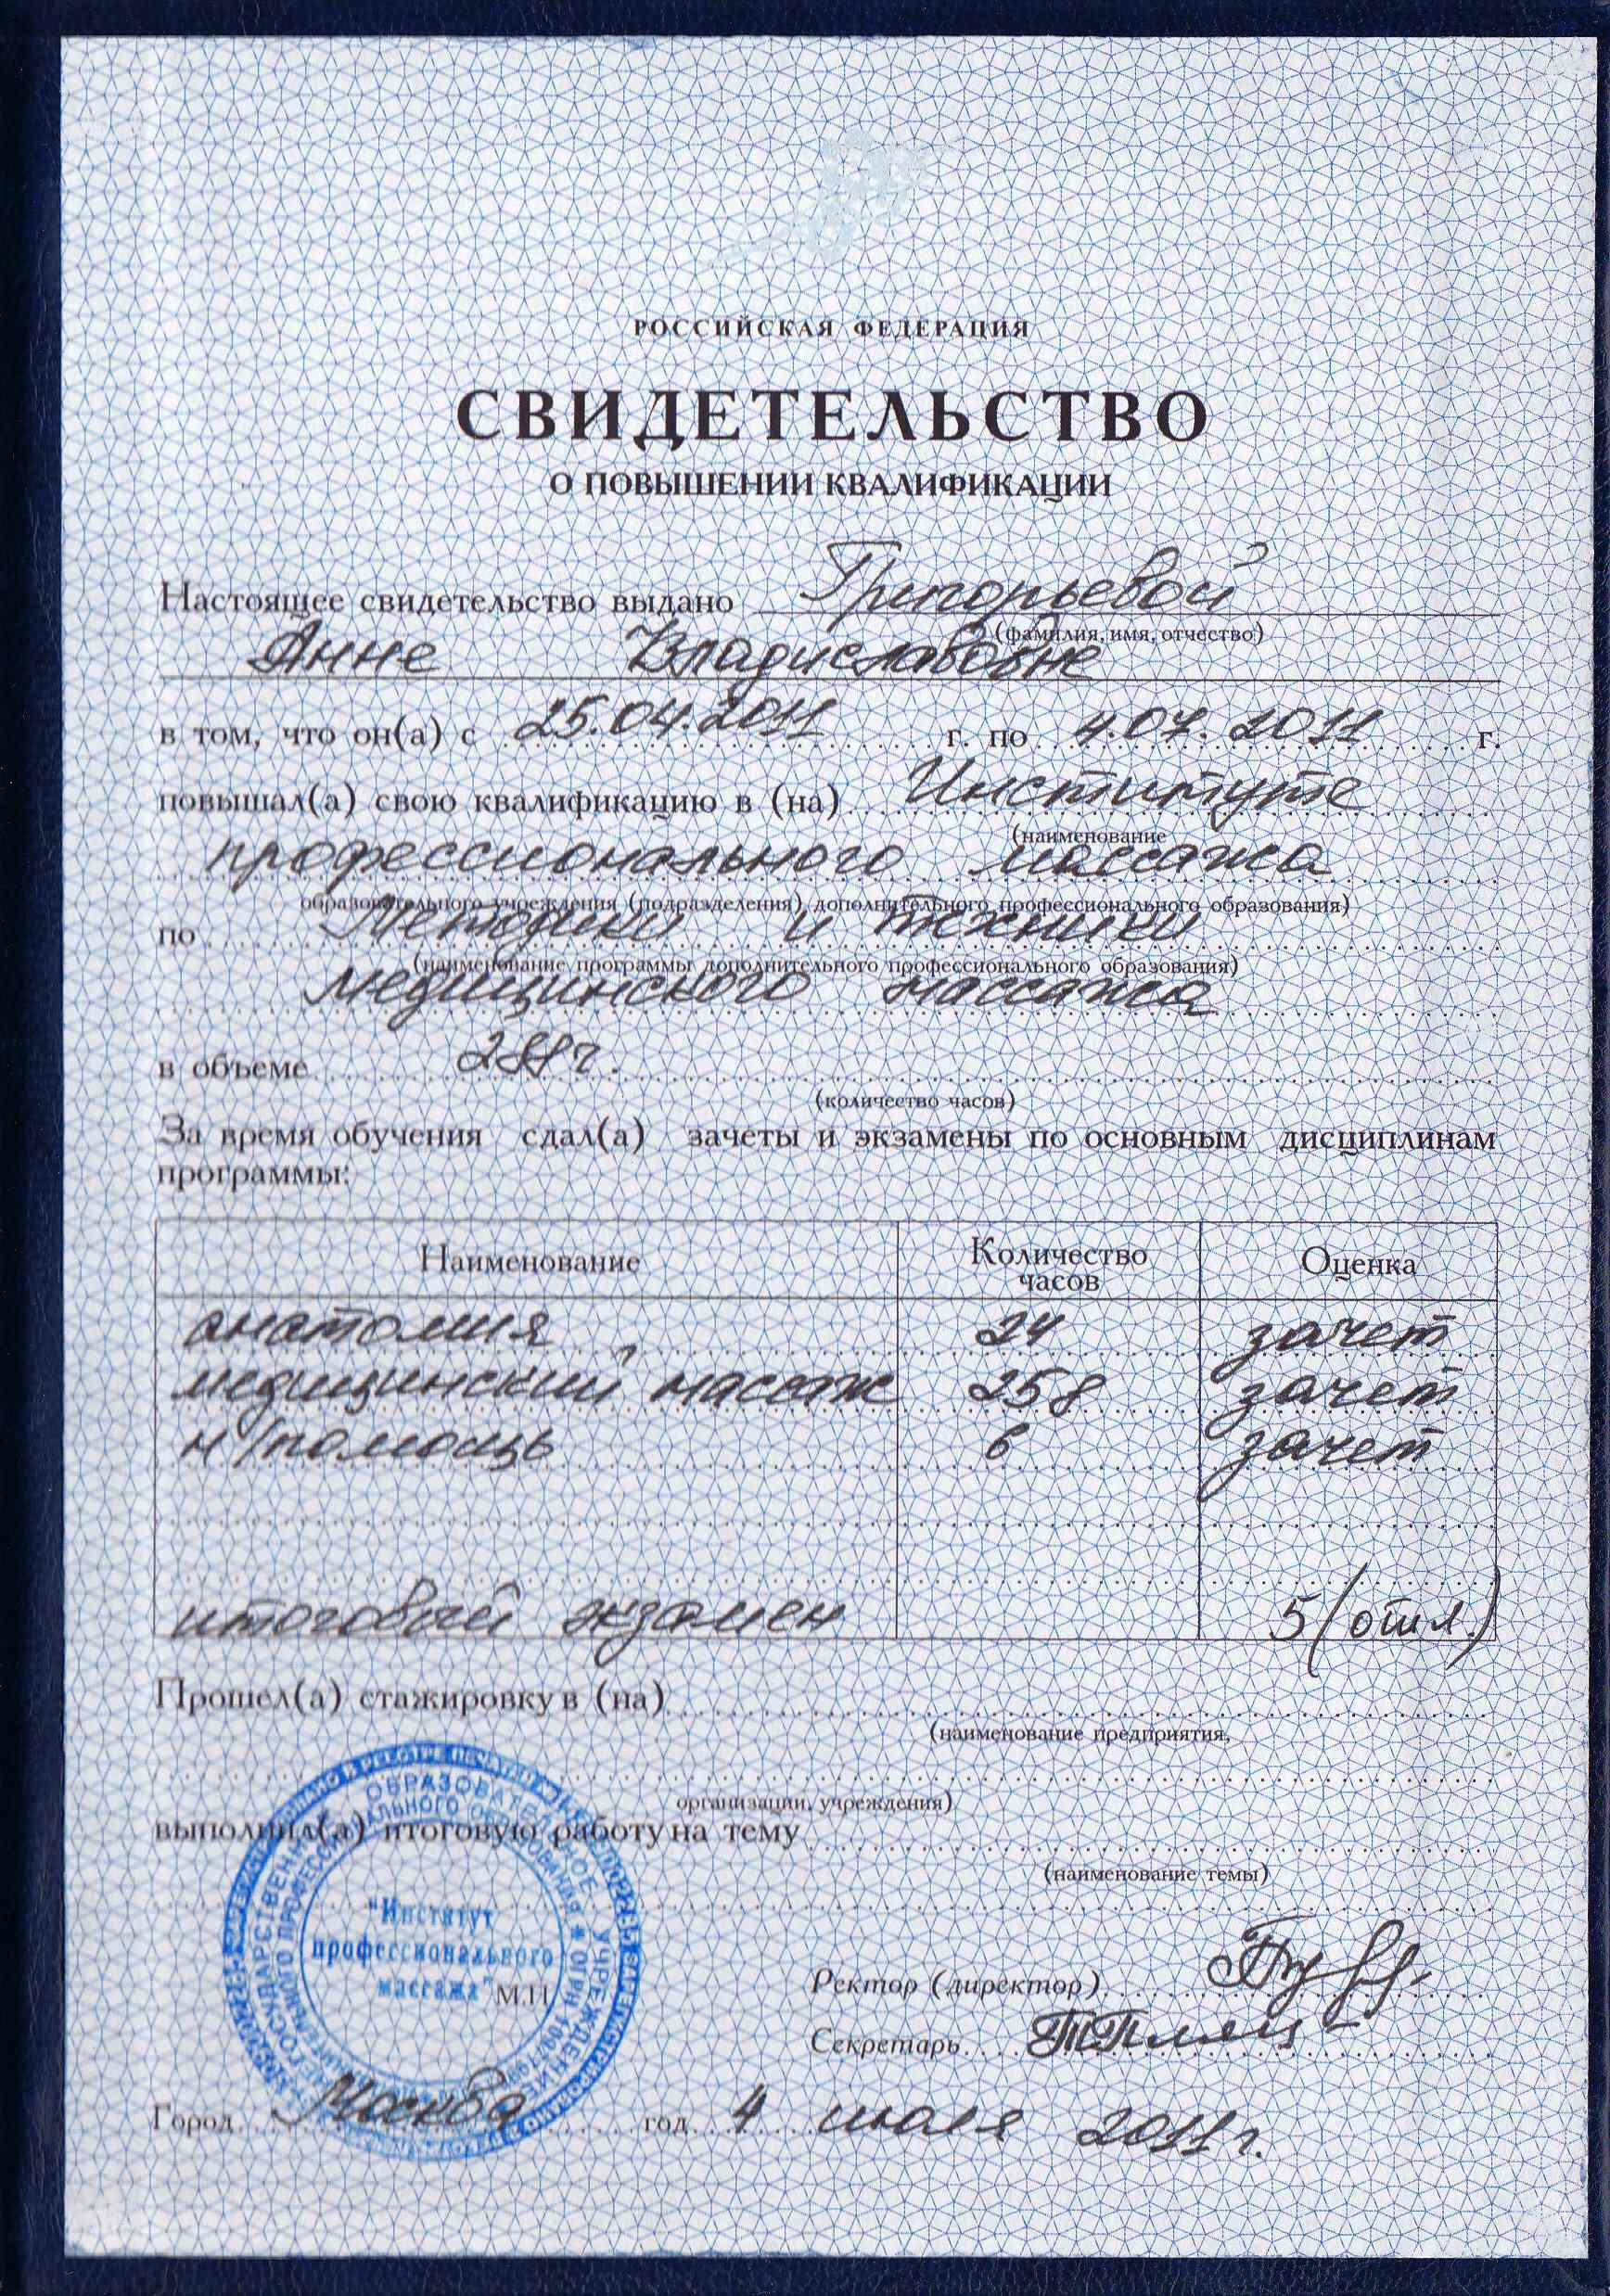 РОССИЙСКАЯ ФЕДЕРАЦИЯ
СВИДЕТЕЛЬСТВО
О ПОВЫШЕНИИ КВАЛИФИКАЦИИ
Настоящее свидетельство выдано Григорьевой
(фамилия, имя, отчество)
Анне Владиславовне
в том, что он(а) с 25.04.2011 г. по 4.07.2011 г.
повышал(а) свою квалификацию в (на) Институте
(наименование
профессионального массажа
образовательного учреждения (подразделения) дополнительного профессионального образования)
по Методики и техники
(наименование программы дополнительного профессионального образования)
медицинского массажа
в объеме 288 ч.
(количество часов)
За время обучения сдал(а) зачеты и экзамены по основным дисциплинам
программы:
Наименование Количество часов Оценка
анатомия 24 зачет
медицинский массаж 258 зачет
н/помощь 6 зачет
итоговый экзамен 5 (отл.)
Прошел(а) стажировку в (на)
(наименование предприятия,
организации, учреждения)
выполнил(а) итоговую работу на тему
(наименование темы)
ОБРАЗОВАТЕЛЬНОЕ УЧРЕЖДЕНИЕ
"Институт
профессионального
массажа"
М.П.
Ректор (директор)
Секретарь
Город Москва год 4 июля 2011 г.